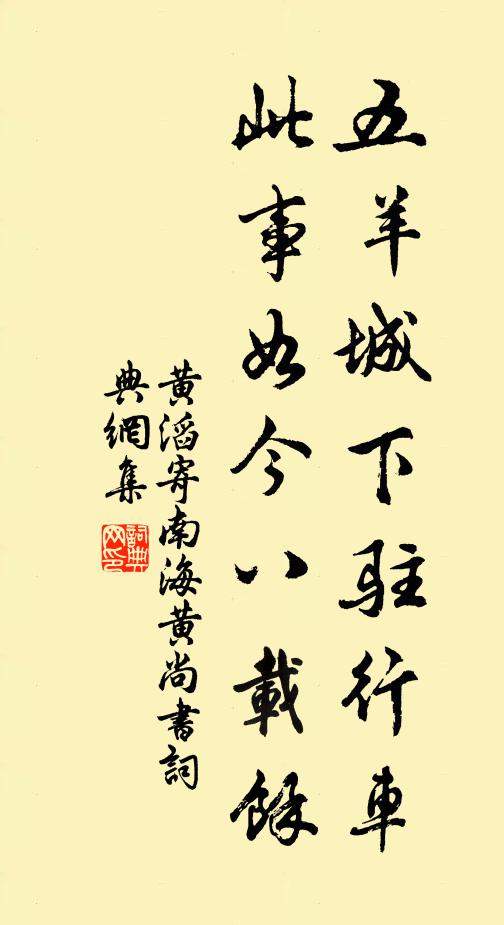 五羊城下駐行車
此事如今八載餘
黃滔寄南海黃尚書詞
典網集
詞典網印